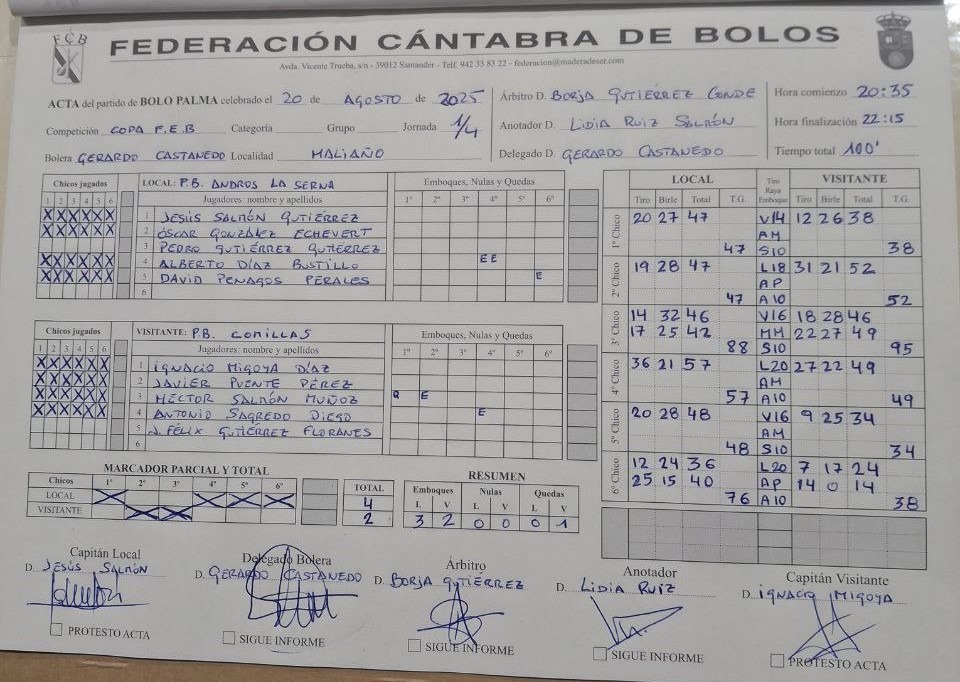 FCB
FEDERACIÓN CÁNTABRA DE BOLOS
Avda. Vicente Trueba, s/n - 39012 Santander - Telf. 942 33 83 22 - federacion@maderadeser.com
ACTA del partido de BOLO PALMA celebrado el 20 de AGOSTO de 2025
Competición COPA F.E.B Categoría Grupo Jornada 1/4
Bolera GERARDO CASTANEDO Localidad MALIAÑO
Árbitro D. BORJA GUTIÉRREZ CONDE
Anotador D. LIDIA RUIZ SALMÓN
Delegado D. GERARDO CASTANEDO
Hora comienzo 20:35
Hora finalización 22:15
Tiempo total 100'
Chicos jugados LOCAL: P.B. ANDROS LA SERNA Emboques, Nulas y Quedas
1 2 3 4 5 6 Jugadores: nombre y apellidos 1º 2º 3º 4º 5º 6º
X X X X X X 1 JESÚS SALMÓN GUTIÉRREZ
X X X X X X 2 ÓSCAR GONZÁLEZ ECHEVERT
3 PEDRO GUTIÉRREZ GUTIÉRREZ
X X X X X X 4 ALBERTO DÍAZ BUSTILLO E E
X X X X X X 5 DAVID PENAGOS PERALES E
6
Chicos jugados VISITANTE: P.B. COMILLAS Emboques, Nulas y Quedas
1 2 3 4 5 6 Jugadores: nombre y apellidos 1º 2º 3º 4º 5º 6º
X X X X X X 1 IGNACIO MIGOYA DÍAZ
X X X X X X 2 JAVIER PUENTE PÉREZ
X X X X X X 3 HÉCTOR SALMÓN MUÑOZ Q E
X X X X X X 4 ANTONIO SAGREDO DIEGO E
5 J. FÉLIX GUTIÉRREZ FLORANES
6
MARCADOR PARCIAL Y TOTAL
Chicos 1º 2º 3º 4º 5º 6º TOTAL
LOCAL X X X X 4
VISITANTE X X 2
RESUMEN
Emboques Nulas Quedas
L V L V L V
3 2 0 0 0 1
LOCAL Tiro Raya Emboque VISITANTE
Tiro Birle Total T.G. Tiro Birle Total T.G.
1º Chico 20 27 47 V14 12 26 38
AM
47 S10 38
2º Chico 19 28 47 L18 31 21 52
AP
47 A10 52
3º Chico 14 32 46 V16 18 28 46
17 25 42 MM 22 27 49
88 S10 95
4º Chico 36 21 57 L20 27 22 49
AM
57 A10 49
5º Chico 20 28 48 V16 9 25 34
AM
48 S10 34
6º Chico 12 24 36 L20 7 17 24
25 15 40 AP 14 0 14
76 A10 38
Capitán Local
D. JESÚS SALMÓN
PROTESTO ACTA
Delegado Bolera
D. GERARDO CASTANEDO
SIGUE INFORME
Árbitro
D. BORJA GUTIÉRREZ
SIGUE INFORME
Anotador
D. LIDIA RUIZ
SIGUE INFORME
Capitán Visitante
D. IGNACIO MIGOYA
PROTESTO ACTA